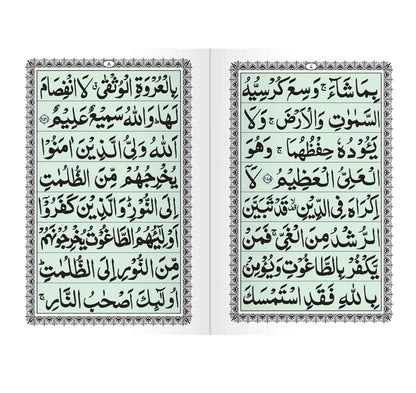 بِمَا شَآءَ ۚ وَسِعَ كُرْسِيُّهُ
السَّمٰوٰتِ وَالْاَرْضَ ۚ وَلَا
يَـُٔوْدُهٗ حِفْظُهُمَا ۚ وَهُوَ
الْعَلِيُّ الْعَظِيْمُ ۝ لَآ
اِكْرَاهَ فِي الدِّيْنِ ۙ قَدْ تَّبَيَّنَ
الرُّشْدُ مِنَ الْغَيِّ ۚ فَمَنْ
يَّكْفُرْ بِالطَّاغُوْتِ وَيُؤْمِنْ
بِاللّٰهِ فَقَدِ اسْتَمْسَكَ
٨
بِالْعُرْوَةِ الْوُثْقٰى ۗ لَا انْفِصَامَ
لَهَا ۗ وَاللّٰهُ سَمِيْعٌ عَلِيْمٌ ۝
اَللّٰهُ وَلِيُّ الَّذِيْنَ اٰمَنُوْا
يُخْرِجُهُمْ مِّنَ الظُّلُمٰتِ
اِلَى النُّوْرِ ۗ وَالَّذِيْنَ كَفَرُوْٓا
اَوْلِيٰٓـُٔهُمُ الطَّاغُوْتُ يُخْرِجُوْنَهُمْ
مِّنَ النُّوْرِ اِلَى الظُّلُمٰتِ ۗ
اُولٰٓئِكَ اَصْحٰبُ النَّارِ ۚ